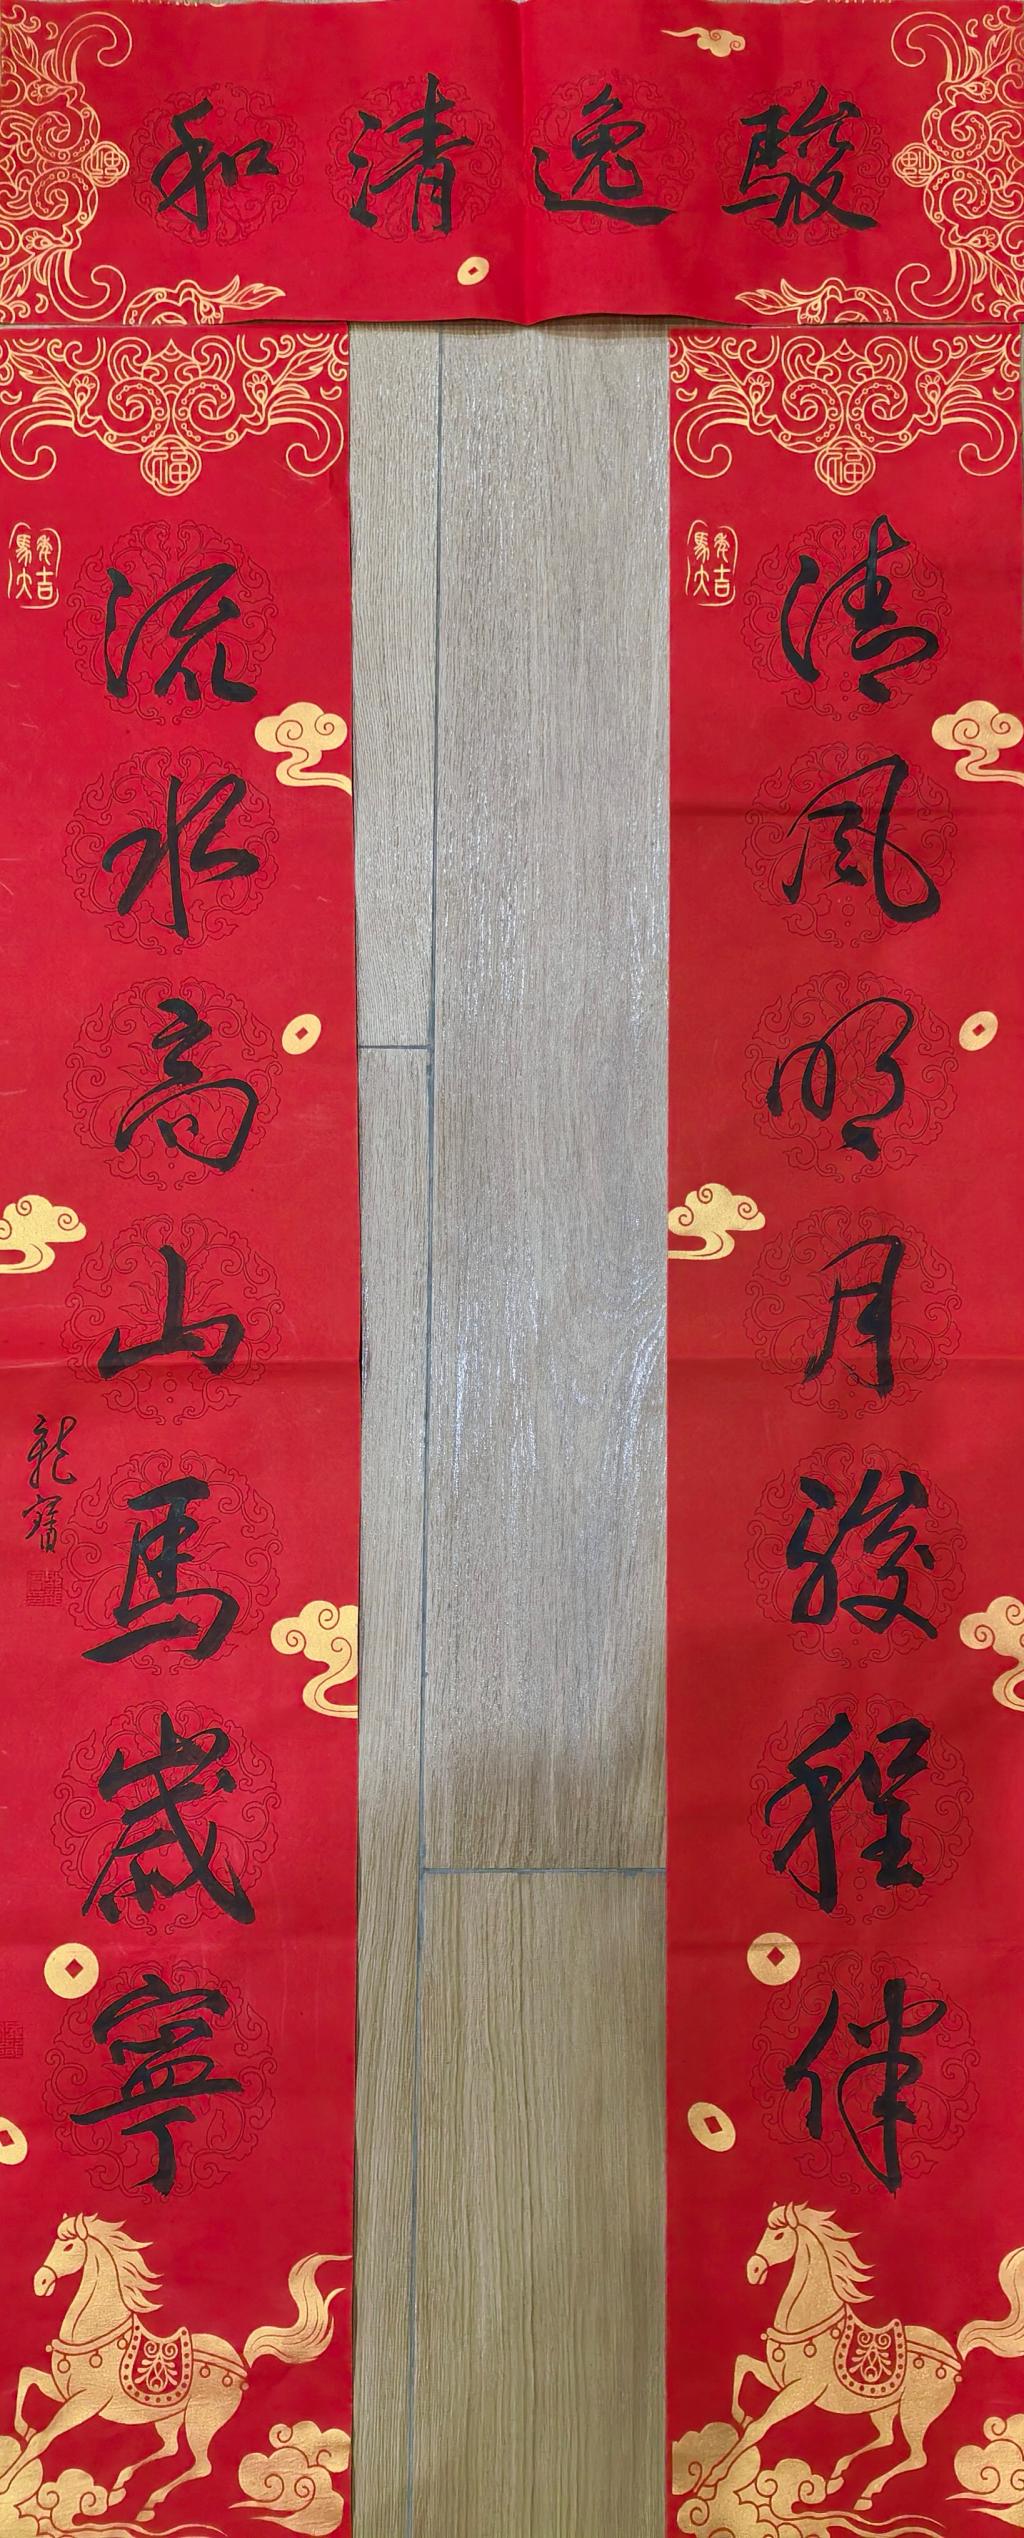 駿逸清和
清風明月駿程伴
流水高山馬歲寧
龍寶
馬年大吉
馬年大吉
福
福